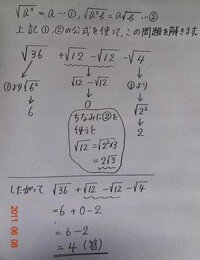 √a² = a … ①, √a²b = a√b … ②
上記①,②の公式を使って、この問題を解きます。
√36 + √12 - √12 - √4
①より √6² √12 - √12 ①より √2²
6 0 2
ちなみに②を
使うと
√12 = √2²×3
= 2√3
したがって √36 + √12 - √12 - √4
= 6 + 0 - 2
= 6 - 2
= 4 (答)
2011 06 08